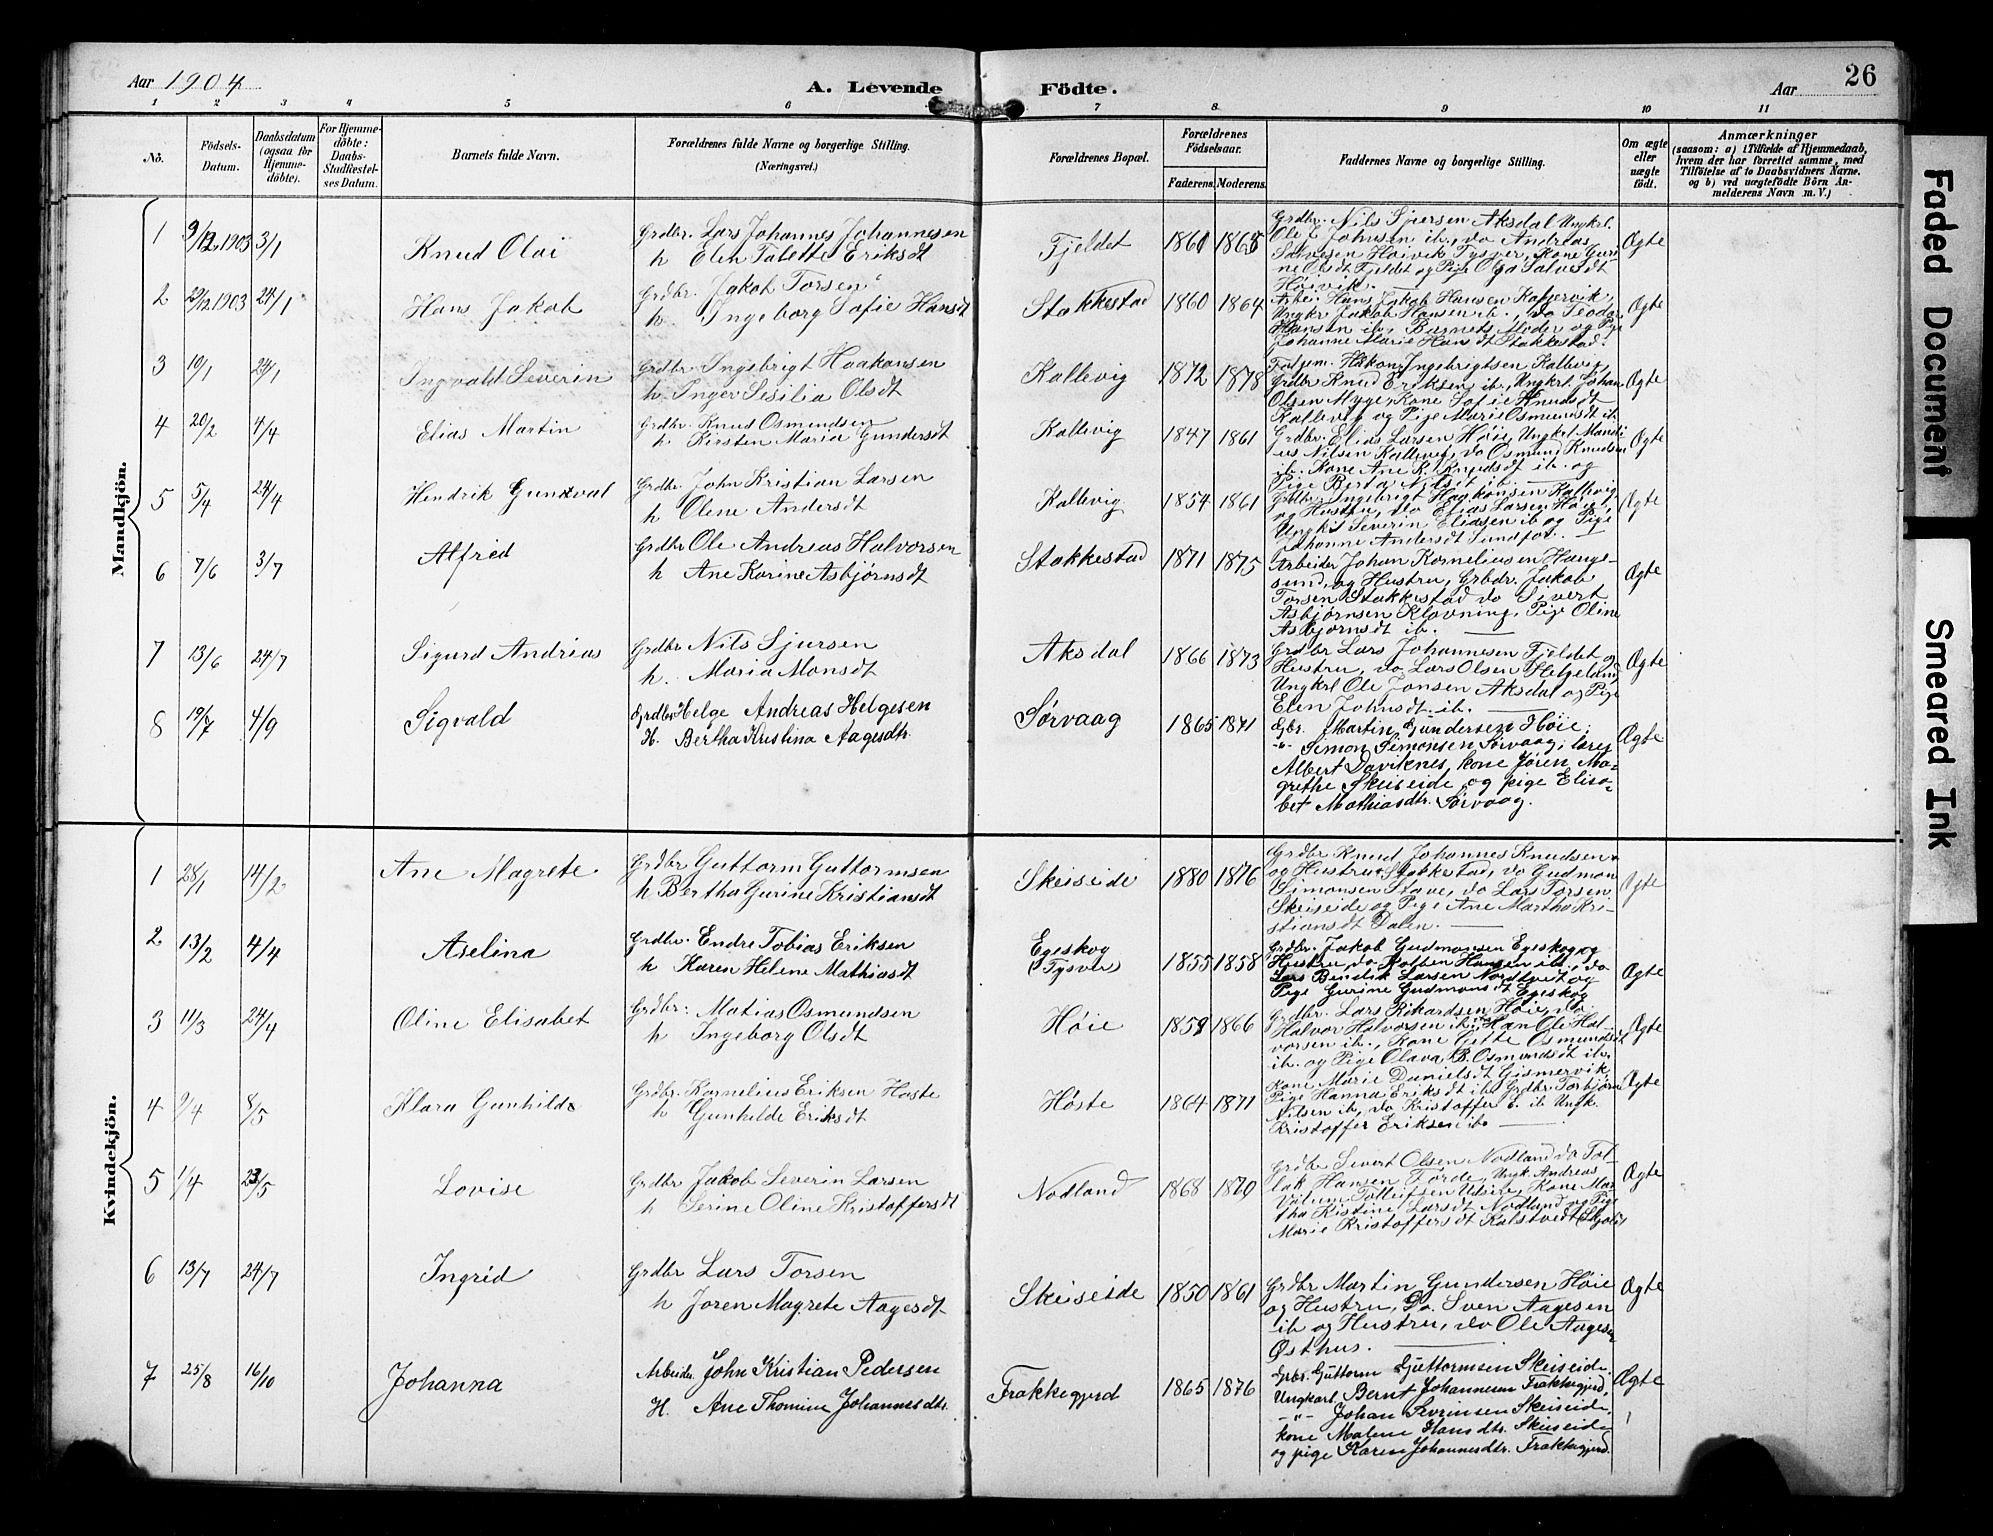 Aar 1904 A. Levende Födte. Aar 26
1 2 3 4 5 6 7 8 9 10 11
No. Födsels-Datum. Daabsdatum (ogsaa for Hjemmedöbte). For Hjemmedöbte: Daabs-Stadfæstelses Datum. Barnets fulde Navn. Forældrenes fulde Navne og borgerlige Stilling. (Næringsvei.) Forældrenes Bopæl. Forældrenes Födselsaar. Faderens. Moderens. Faddernes Navne og borgerlige Stilling. Om ægte eller uægte födt. Anmærkninger (saasom: a) i Tilfælde af Hjemmedaab, hvem der har forrettet samme, med Tilföielse af to Daabsvidners Navne. og b) ved uægtefödte Börn Anmelderens Navn m. V.)
Mandkjön.
1 9/12 1903 3/1 Knud Olai
Grdbr. Lars Johannes Johannesen
h Elen Tabette Eriksdt
Fjeldet 1861 1865
Grdbr. Nils Sjursen Aksdal Ungkrl.
Ole E Johnsen ib., do Andreas
Salvesen Høivik Tysver, Kone Guri-
ne Olsdt Fjeldet og Pige Olga Salvesdt
Høivik.
Ægte
2 29/12 1903 24/1 Hans Jakob
Grdbr. Jakob Torsen
h. Ingeborg Sofie Hansdt
Stakkestad 1860 1864
Arbei. Hans Jakob Hansen Kopervik,
Ungkr Jakob Hansen ib., do Teodor
Hansen ib, Barnets Moder og Pige
Johanne Marie Hansdt Stakkestad.
Ægte
3 10/1 24/1 Ingvald Severin
Grdbr Ingebrigt Haakonsen
h. Inger Sesilia Olsdt
Kallevig 1872 1878
Håkon Ingebrigtsen Kallevig,
Grdbr Knud Eriksen ib., Ungkrl. Johan
Olsen Myge, Kone Sofie Knudsdt
Kallevig og Pige Marie Osmundsdt ib
Ægte
4 20/2 4/4 Elias Martin
Grdbr. Knud Osmundsen
h. Kirsten Maria Gundersdt
Kallevig 1847 1861
Grdbr. Elias Larsen Høie, Ungkrl
Nilsen Kallevig, do Osmund Knudsen
ib. Kone Ane K. Knudsdt ib. og
Pige Berta Nilsdt ib.
Ægte
5 5/4 24/4 Hendrik Gundval
Grdbr. John Kristian Larsen
h Oline Andersdt
Kallevig 1854 1861
Grdbr. Ingebrigt Haakonsen Kallevig
og Hustru, do Elias Larsen Høie,
Ungkrl Severin Eliasen ib og Pige
Johanne Andersdt Sundfør.
Ægte
6 7/6 3/7 Alfred
Grdbr Ole Andreas Halvorsen
h Ane Karine Asbjørnsdt
Stakkestad 1871 1875
Arbeider Johan Korneliusen Hauge-
sund og Hustru, Grbdr. Jakob
Torsen Stakkestad do Sivert
Asbjørnsen Kløvning, Pige Oline
Asbjørnsdt ib.
Ægte
7 13/6 24/7 Sigurd Andreas
Grdbr Nils Sjursen
h. Maria Monsdt
Aksdal 1866 1873
Grdbr Lars Johannesen Fjeldet og
Hustru, do Lars Olsen Helgeland,
Ungkrl Ole Jonsen Aksdal og Pige
Elen Johnsdt. ib.
Ægte
8 19/7 4/9 Sigvald
Grdbr Helge Andreas Helgesen
H. Bertha Kristina Aagesdtr.
Sørvaag 1865 1871
Gbr. Martin Gundersen Høie,
-"- Simon Simonsen Sørvaag, lærer
Albert Daviknes, kone Jøren Ma-
grethe Skeiseide, og pige Elisa-
bet Mathiasdtr. Sørvaag.
Ægte
Kvindekjön.
1 28/1 14/2 Ane Magrete
Grdbr Guttorm Guttormsen
h Bertha Gurine Kristiansdt
Skeiseide 1880 1876
Grdbr Knud Johannes Knudsen
og Hustru Stakkestad, do Gudmon
Simonsen Stave, do Lars Torsen
Skeiseide og Pige Ane Martha Kri-
stiansdt Dalen.
Ægte
2 13/2 4/4 Aselina
Grdbr. Endre Tobias Eriksen
h Karen Helene Mathiasdt
Egeskog
(Tysver) 1855 1858
Grdbr. Jakob Gudmonsen Egeskog og
Hustru, do Hansen ib., do
Lars Bendik Larsen Nordtveit og
Pige Gurine Gudmonsdt Egeskog
Ægte
3 11/3 24/4 Oline Elisabet
Grdbr: Matias Osmundsen
h Ingeborg Olsdt
Høie 1859 1866
Grdbr. Lars Rikardsen Høie, do
Halvor Halvorsen ib., Ole Hal-
vorsen ib., Kone Gitte Osmundsdt
ib. og Pige Olava B. Osmundsdt ib.
Ægte
4 9/4 8/5 Klara Gunhilde
Grdbr. Kornelius Eriksen Høste
h Gunhilde Eriksdt
Høste 1864 1871
Kone Marie Danielsdt Gismervik
Pige Hanna Eriksdt ib. Grdbr. Torbjørn
Nilsen ib, do Kristoffer E. ib Ungk.
Kristoffer Eriksen ib.
Ægte
5 1/4 23/5 Lovise
Grdbr Jakob Severin Larsen
h Serine Oline Kristoffersdt
Nodland 1868 1870
Grdbr Sivert Olsen Nodland do Tol-
lak Hansen Førde, Ungk. Andreas
Tolleifsen Udsire, Kone Mar-
tha Kistine Larsdt Nodland og Pige
Marie Kristoffersdt Kalstveit (Skjold)
Ægte
6 13/7 24/7 Ingrid
Grdbr Lars Torsen
h Jøren Magrete Aagesdt
Skeiseide 1850 1861
Grdbr Martin Gundersen Høie
og Hustru, Do. Sven Aagesen
ib og Hustru, do Ole Aagesen
Østhus.
Ægte
7 25/8 16/10 Johanna
Arbeider John Kristian Pedersen
H. Ane Thomine Johannesdtr.
Frakkegjerd 1865 1876
Grbr. Guttorm Guttormsen Skeiseide
Ungkarl Bernt Johannesen Frakkegjerd,
-"- Johan Sevrinsen Skeiseide,
kone Malene Hansdtr. Skeiseide
og pige Karen Johannesdtr. Frakkegjerd.
Ægte
Faded Document
Smeared Ink